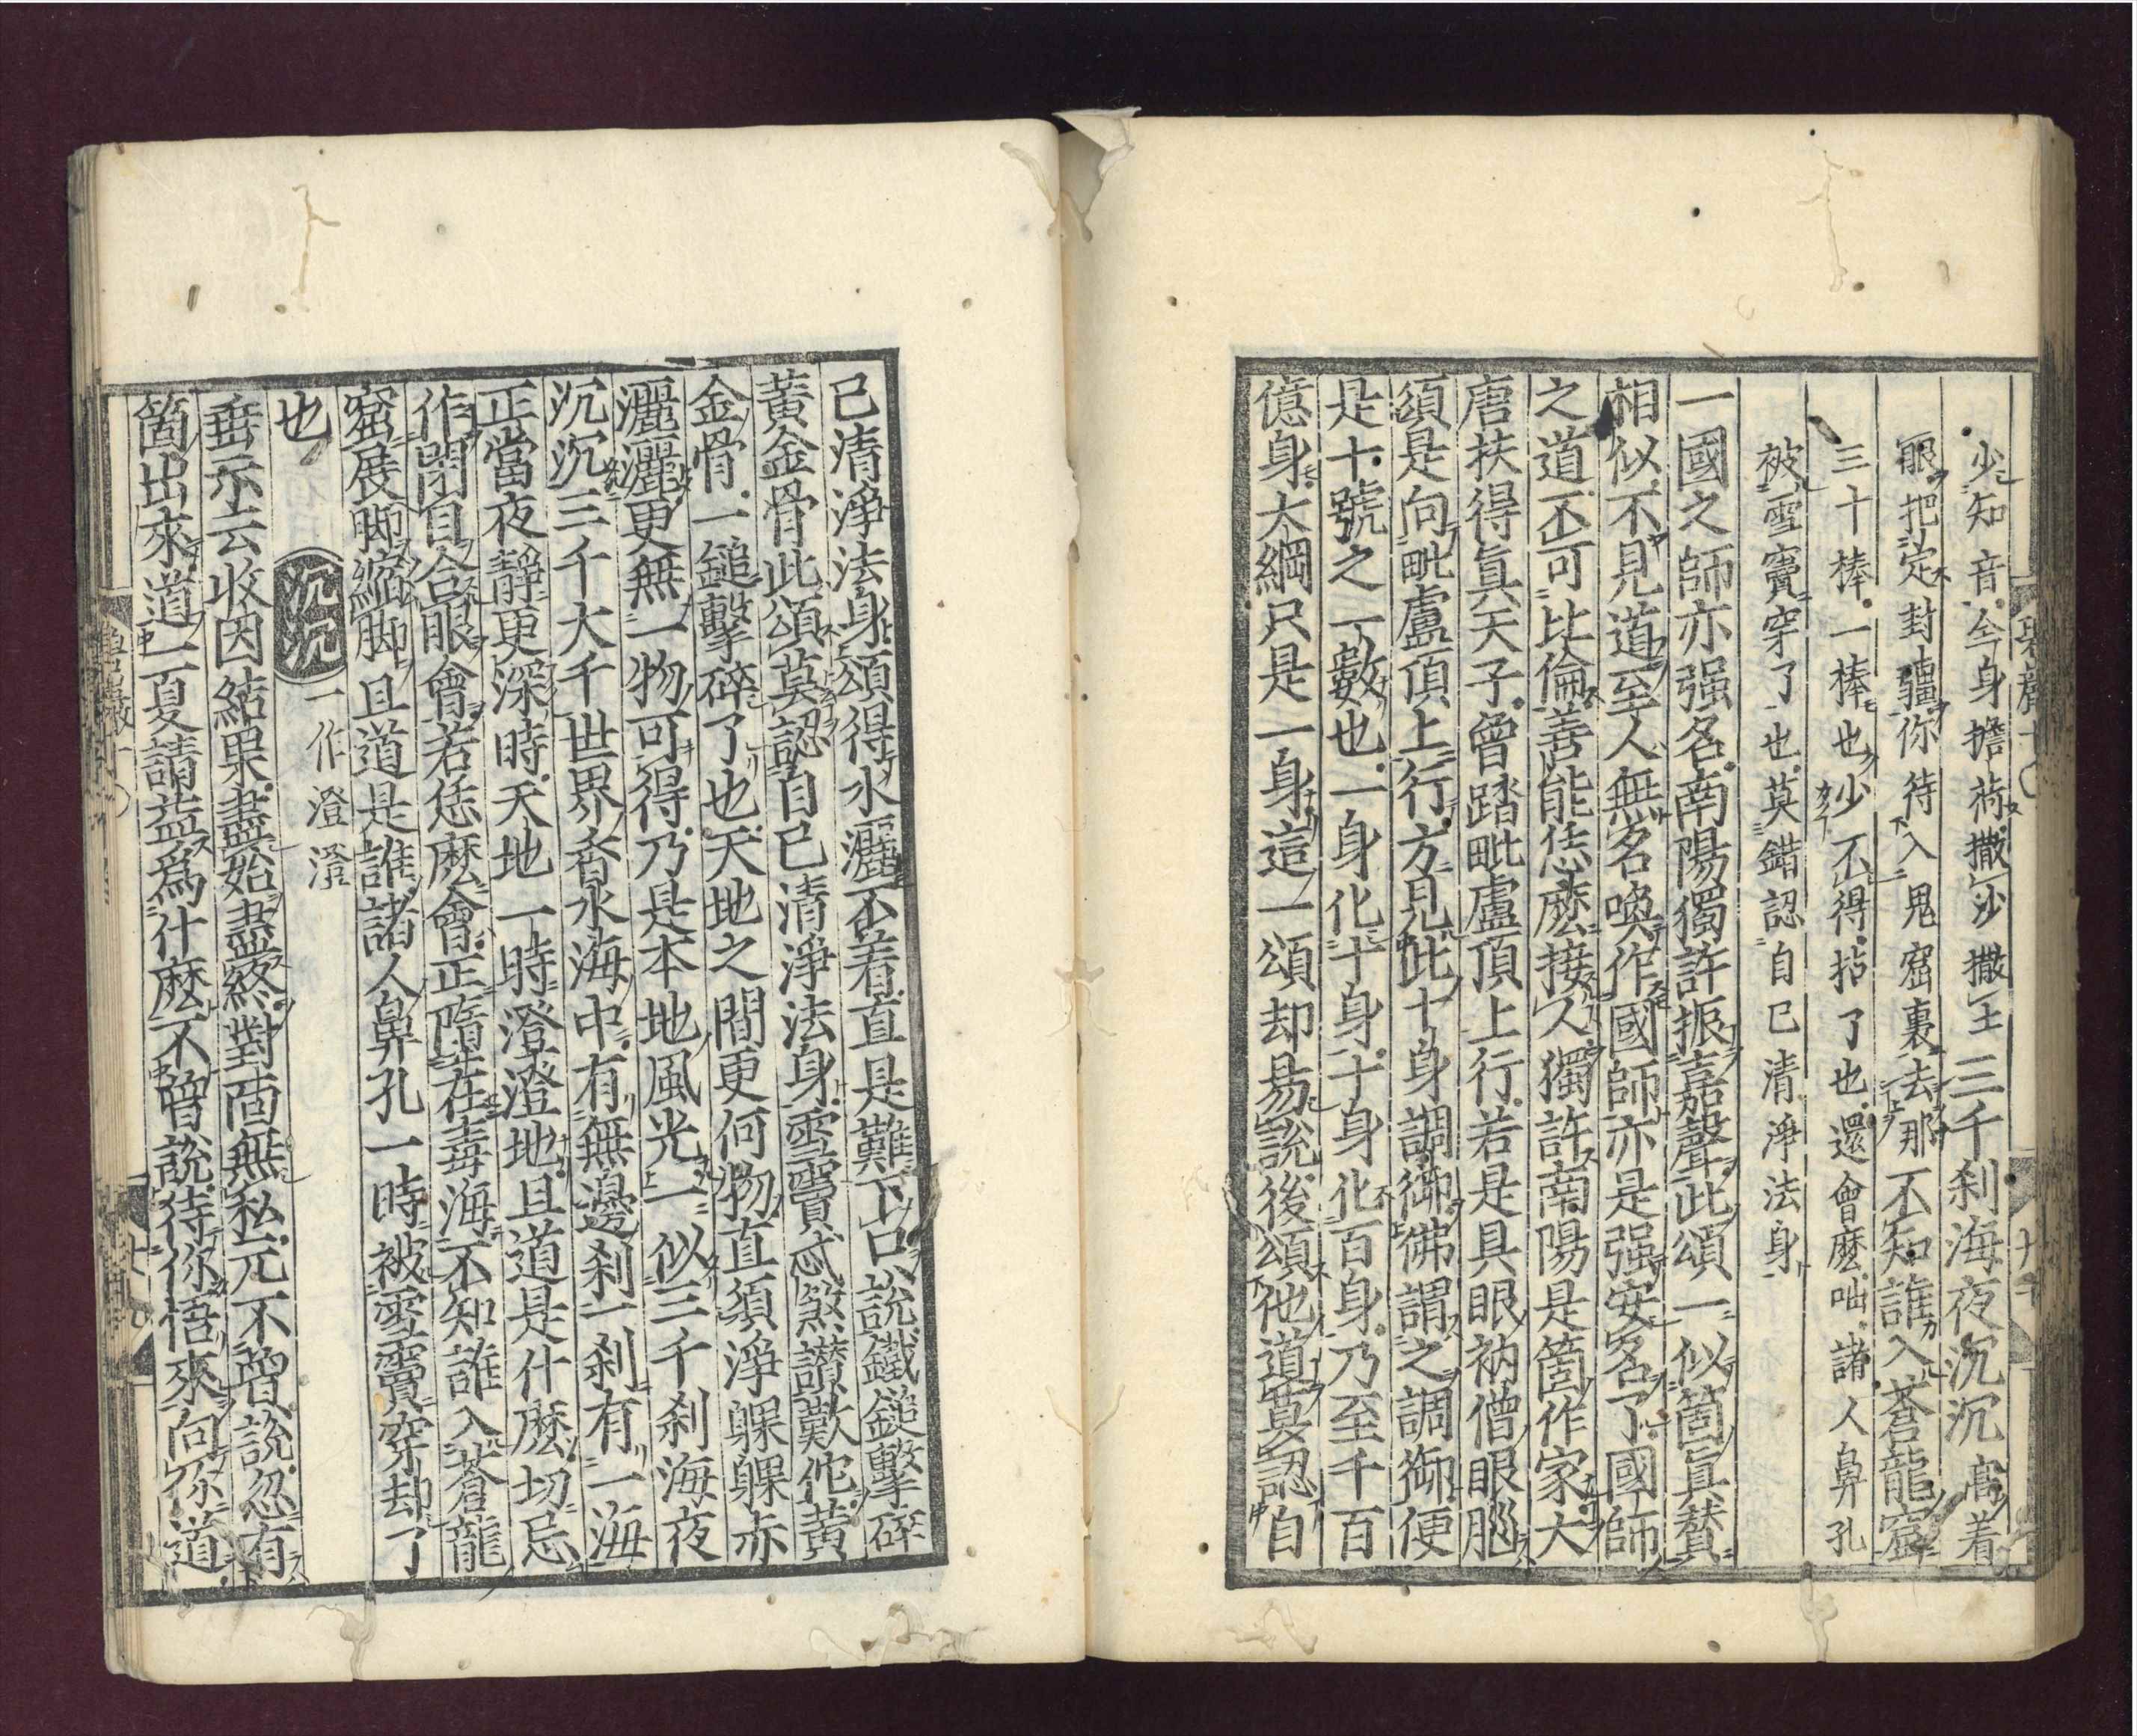 少知音今身擔荷撒沙撒土三千刹海夜沉沉高着
眼把定封疆你待入鬼窟裏去那不知誰入蒼龍窟
三十棒一棒也少不得拈了也還會麽咄諸人鼻孔
被雪竇穿了也莫錯認自己清淨法身
一國之師亦强名南陽獨許振嘉聲此頌一似箇眞賛
相似不見道至人無名喚作國師亦是强安名了國師
之道不可比倫善能恁麽接人獨許南陽是箇作家大
唐扶得眞天子曾踏毗盧頂上行若是具眼衲僧眼腦
須是向毗盧頂上行方見此十身調御佛謂之調御便
是十號之一數也一身化十身十身化百身乃至千百
億身大綱只是一身這一頌却易說後頌他道莫認自
己清淨法身頌得水灑不着直是難下口說鐵鎚擊碎
黃金骨此頌莫認自己清淨法身雪竇忒煞讃歎佗黃
金骨一鎚擊碎了也天地之間更何物直須淨躶躶赤
灑灑更無一物可得乃是本地風光一似三千刹海夜
沉沉三千大千世界香水海中有無邊刹一刹有一海
正當夜靜更深時天地一時澄澄地且道是什麽切忌
作閉目合眼會若恁麽會正墮在毒海不知誰入蒼龍
窟展脚縮脚且道是誰諸人鼻孔一時被雪竇穿却了
也 沉沉 一作澄澄
垂示云收因結果盡始盡終對面無私元不曾說忽有
箇出來道一夏請益爲什麽不曾說待你悟來向你道